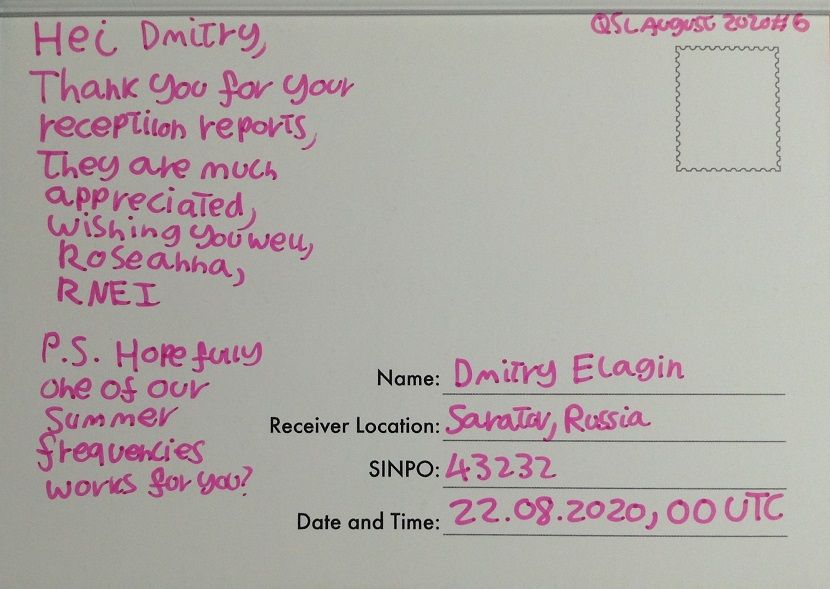 QSL August 2020 #6
Hei Dmitry,
Thank you for your
reception reports,
They are much
appreciated,
wishing you well,
Roseanna,
RNEI
P.S. Hopefully
one of our
summer
frequencies
works for you?
Name: Dmitry Elagin
Receiver Location: Saratov, Russia
SINPO: 43232
Date and Time: 22.08.2020, 00 UTC